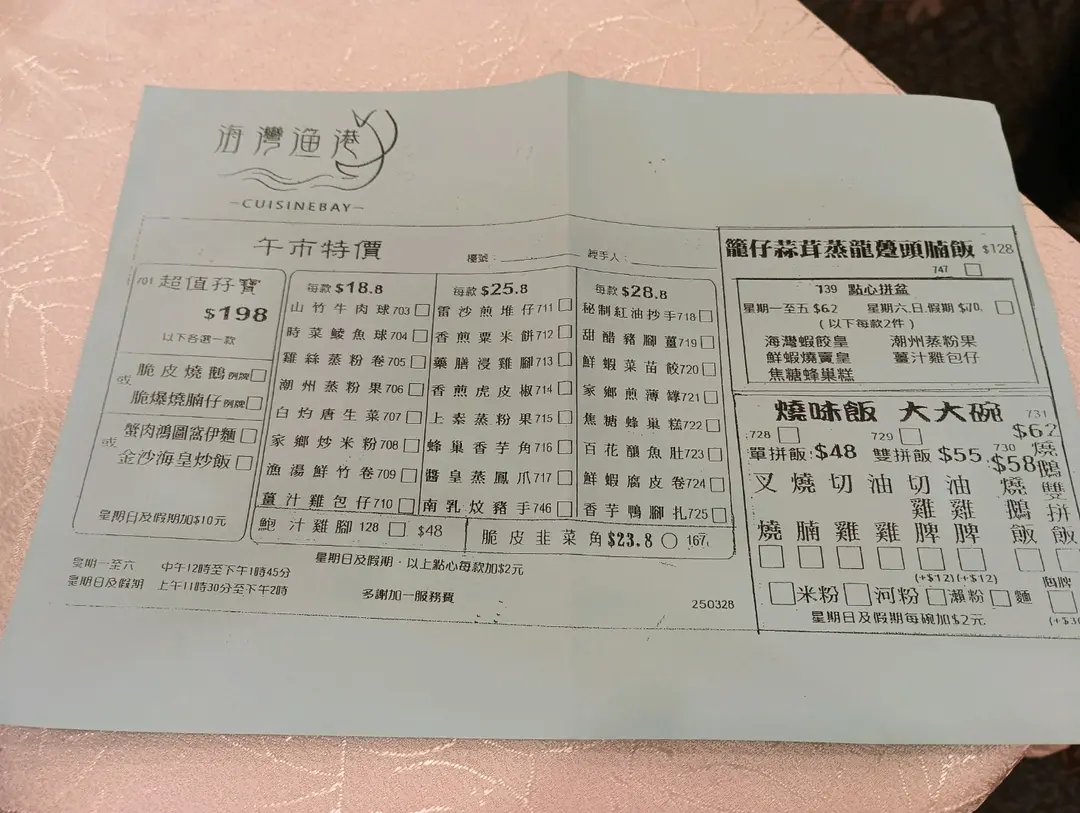 海灣漁港
CUISINEBAY
午市特價
檯號：
經手人：
701 超值孖寶
$198
以下各選一款
脆皮燒鵝例牌
或
脆爆燒腩仔例牌
蟹肉鴻圖窩伊麵
或
金沙海皇炒飯
星期日及假期加$10元
每款 $18.8
山竹牛肉球703
時菜鯪魚球704
雞絲蒸粉卷705
潮州蒸粉果706
白灼唐生菜707
家鄉炒米粉708
漁湯鮮竹卷709
薑汁雞包仔710
每款 $25.8
雷沙煎堆仔711
香煎粟米餅712
藥膳浸雞腳713
香煎虎皮椒714
上素蒸粉果715
蜂巢香芋角716
醬皇蒸鳳爪717
南乳炆豬手746
每款 $28.8
秘制紅油抄手718
甜醋豬腳薑719
鮮蝦菜苗餃720
家鄉煎薄罉721
焦糖蜂巢糕722
百花釀魚肚723
鮮蝦腐皮卷724
香芋鴨腳扎725
鮑汁雞腳 128 $48
脆皮韭菜角$23.8 167
星期日及假期，以上點心每款加$2元
星期一至六 中午12時至下午1時45分
星期日及假期 上午11時30分至下午2時
多謝加一服務費
250328
籠仔蒜茸蒸龍躉頭腩飯 $128
747
139 點心拼盆
星期一至五 $62 星期六.日.假期 $70.
(以下每款2件)
海灣蝦餃皇 潮州蒸粉果
鮮蝦燒賣皇 薑汁雞包仔
焦糖蜂巢糕
燒味飯 大大碗
728 729 730 731
單拼飯:$48 雙拼飯 $55 $58 $62
叉燒
切腩
油雞
切雞髀
油雞髀
燒鵝飯
燒鵝雙拼飯
(+$12)(+$12)
米粉 河粉 瀨粉 麵
星期日及假期每碗加$2元